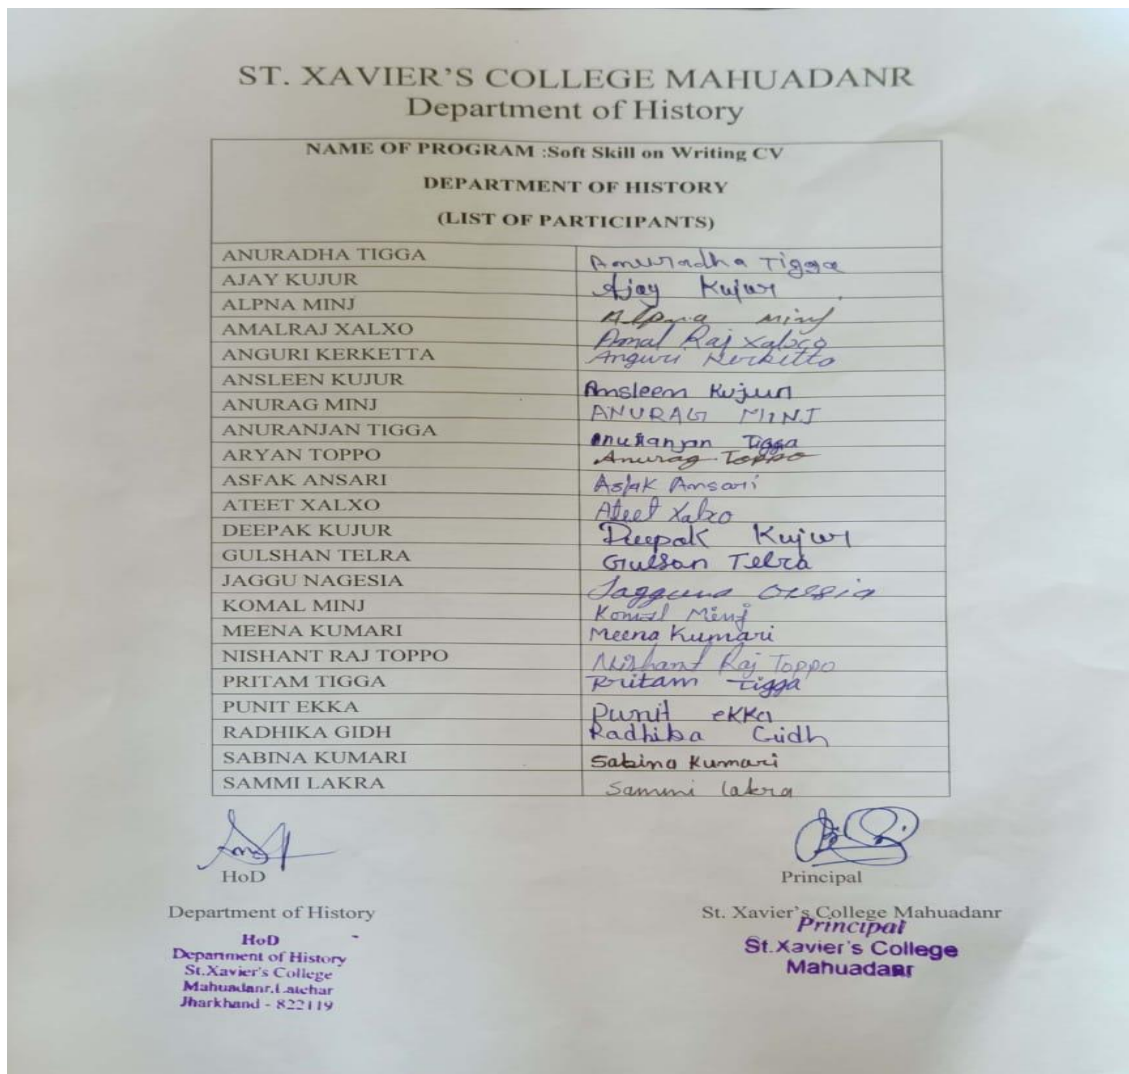 ST. XAVIER'S COLLEGE MAHUADANR
Department of History
NAME OF PROGRAM :Soft Skill on Writing CV
DEPARTMENT OF HISTORY
(LIST OF PARTICIPANTS)
ANURADHA TIGGA Anuradha Tigga
AJAY KUJUR Ajay Kujur
ALPNA MINJ Alpna Minj
AMALRAJ XALXO Amal Raj Xalxo
ANGURI KERKETTA Anguri Kerketta
ANSLEEN KUJUR Ansleen Kujur
ANURAG MINJ ANURAG MINJ
ANURANJAN TIGGA Anuranjan Tigga
ARYAN TOPPO Anurag Toppo
ASFAK ANSARI Asfak Ansari
ATEET XALXO Ateet Xalxo
DEEPAK KUJUR Deepak Kujur
GULSHAN TELRA Gulsan Telra
JAGGU NAGESIA
KOMAL MINJ Komal Minj
MEENA KUMARI Meena Kumari
NISHANT RAJ TOPPO Nishant Raj Toppo
PRITAM TIGGA Pritam Tigga
PUNIT EKKA Punit ekka
RADHIKA GIDH Radhika Gidh
SABINA KUMARI Sabina Kumari
SAMMI LAKRA Sammi Lakra
HoD
Department of History
HoD
Department of History
St.Xavier's College
Mahuadanr,Latehar
Jharkhand - 822119
Principal
St. Xavier's College Mahuadanr
Principal
St.Xavier's College
Mahuadanr